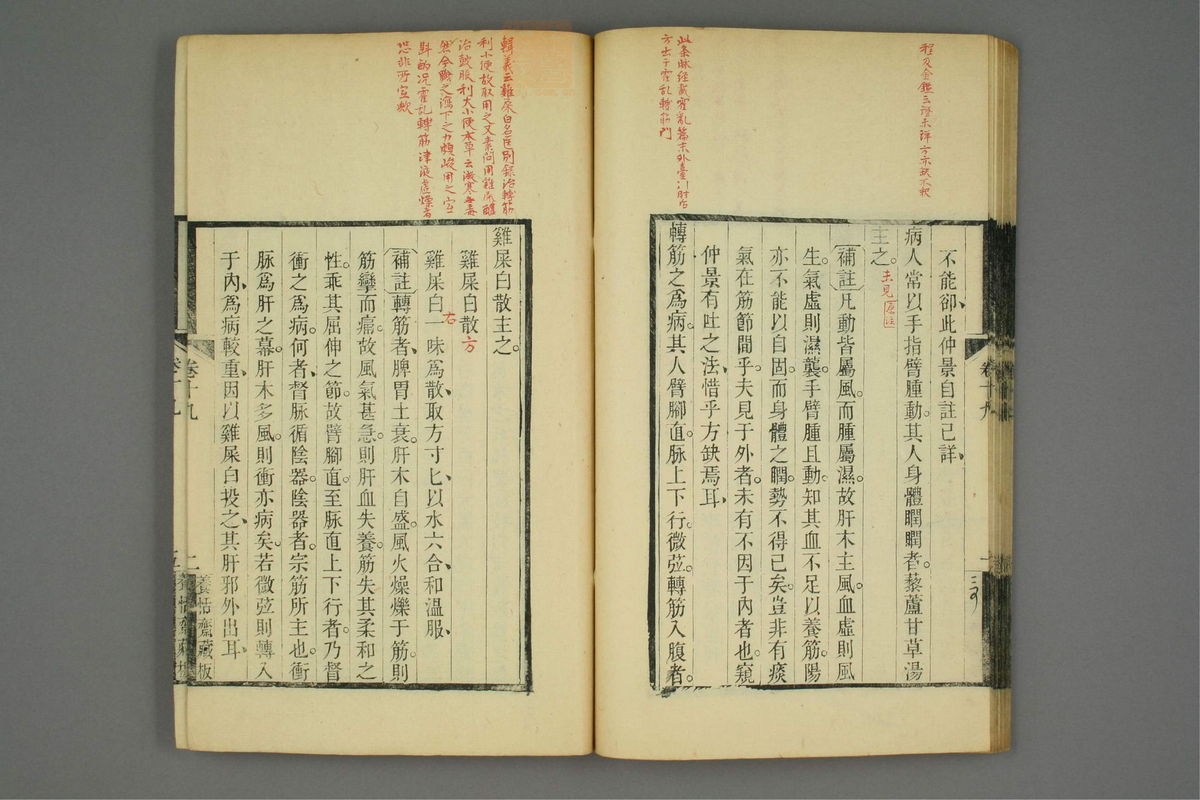 程及金鑑云證未詳方亦缺不釈
不能卻此仲景自註已詳、
病人常以手指臂腫動。其人身體瞤瞤者。藜蘆甘草湯
主之。
未見
補註凡動皆屬風。而腫屬濕。故肝木主風。血虛則風
生。氣虛則濕襲。手臂腫且動。知其血不足以養筋。陽
亦不能以自固。而身體之瞤。勢不得已矣。豈非有痰
氣在筋節間乎。夫見于外者。未有不因于內者也。窺
仲景有吐之法。惜乎方缺焉耳、
此條脉經載霍亂篇末外臺引肘后
方出于霍乱轉筋門
轉筋之為病。其人臂腳直。脉上下行。微弦。轉筋入腹者。
卷十九
一
輯義云雞屎白名医別録治轉筋
利小便故取用之又素問用雞屎醴
治鼓脹利大小便本草云微寒無毒
然今驗之瀉下之力頗峻用之宜
斟酌況霍乱轉筋津液虛燥者
恐非所宜歟
雞屎白散主之。
雞屎白散方
右
雞屎白一味為散、取方寸匕、以水六合、和溫服、
補註轉筋者、脾胃土衰。肝木自盛。風火燥爍于筋。則
筋攣而痛。故風氣甚急。則肝血失養。筋失其柔和之
性。乖其屈伸之節。故臂腳直。至脉直上下行者。乃督
衝之為病。何者、督脉循陰器。陰器者。宗筋所主也。衝
脉為肝之募。肝木多風。則衝亦病矣。若微弦則轉入
于內、為病較重、因以雞屎白投之、其肝邪外出耳、
卷十九
二
養恬齋藏板